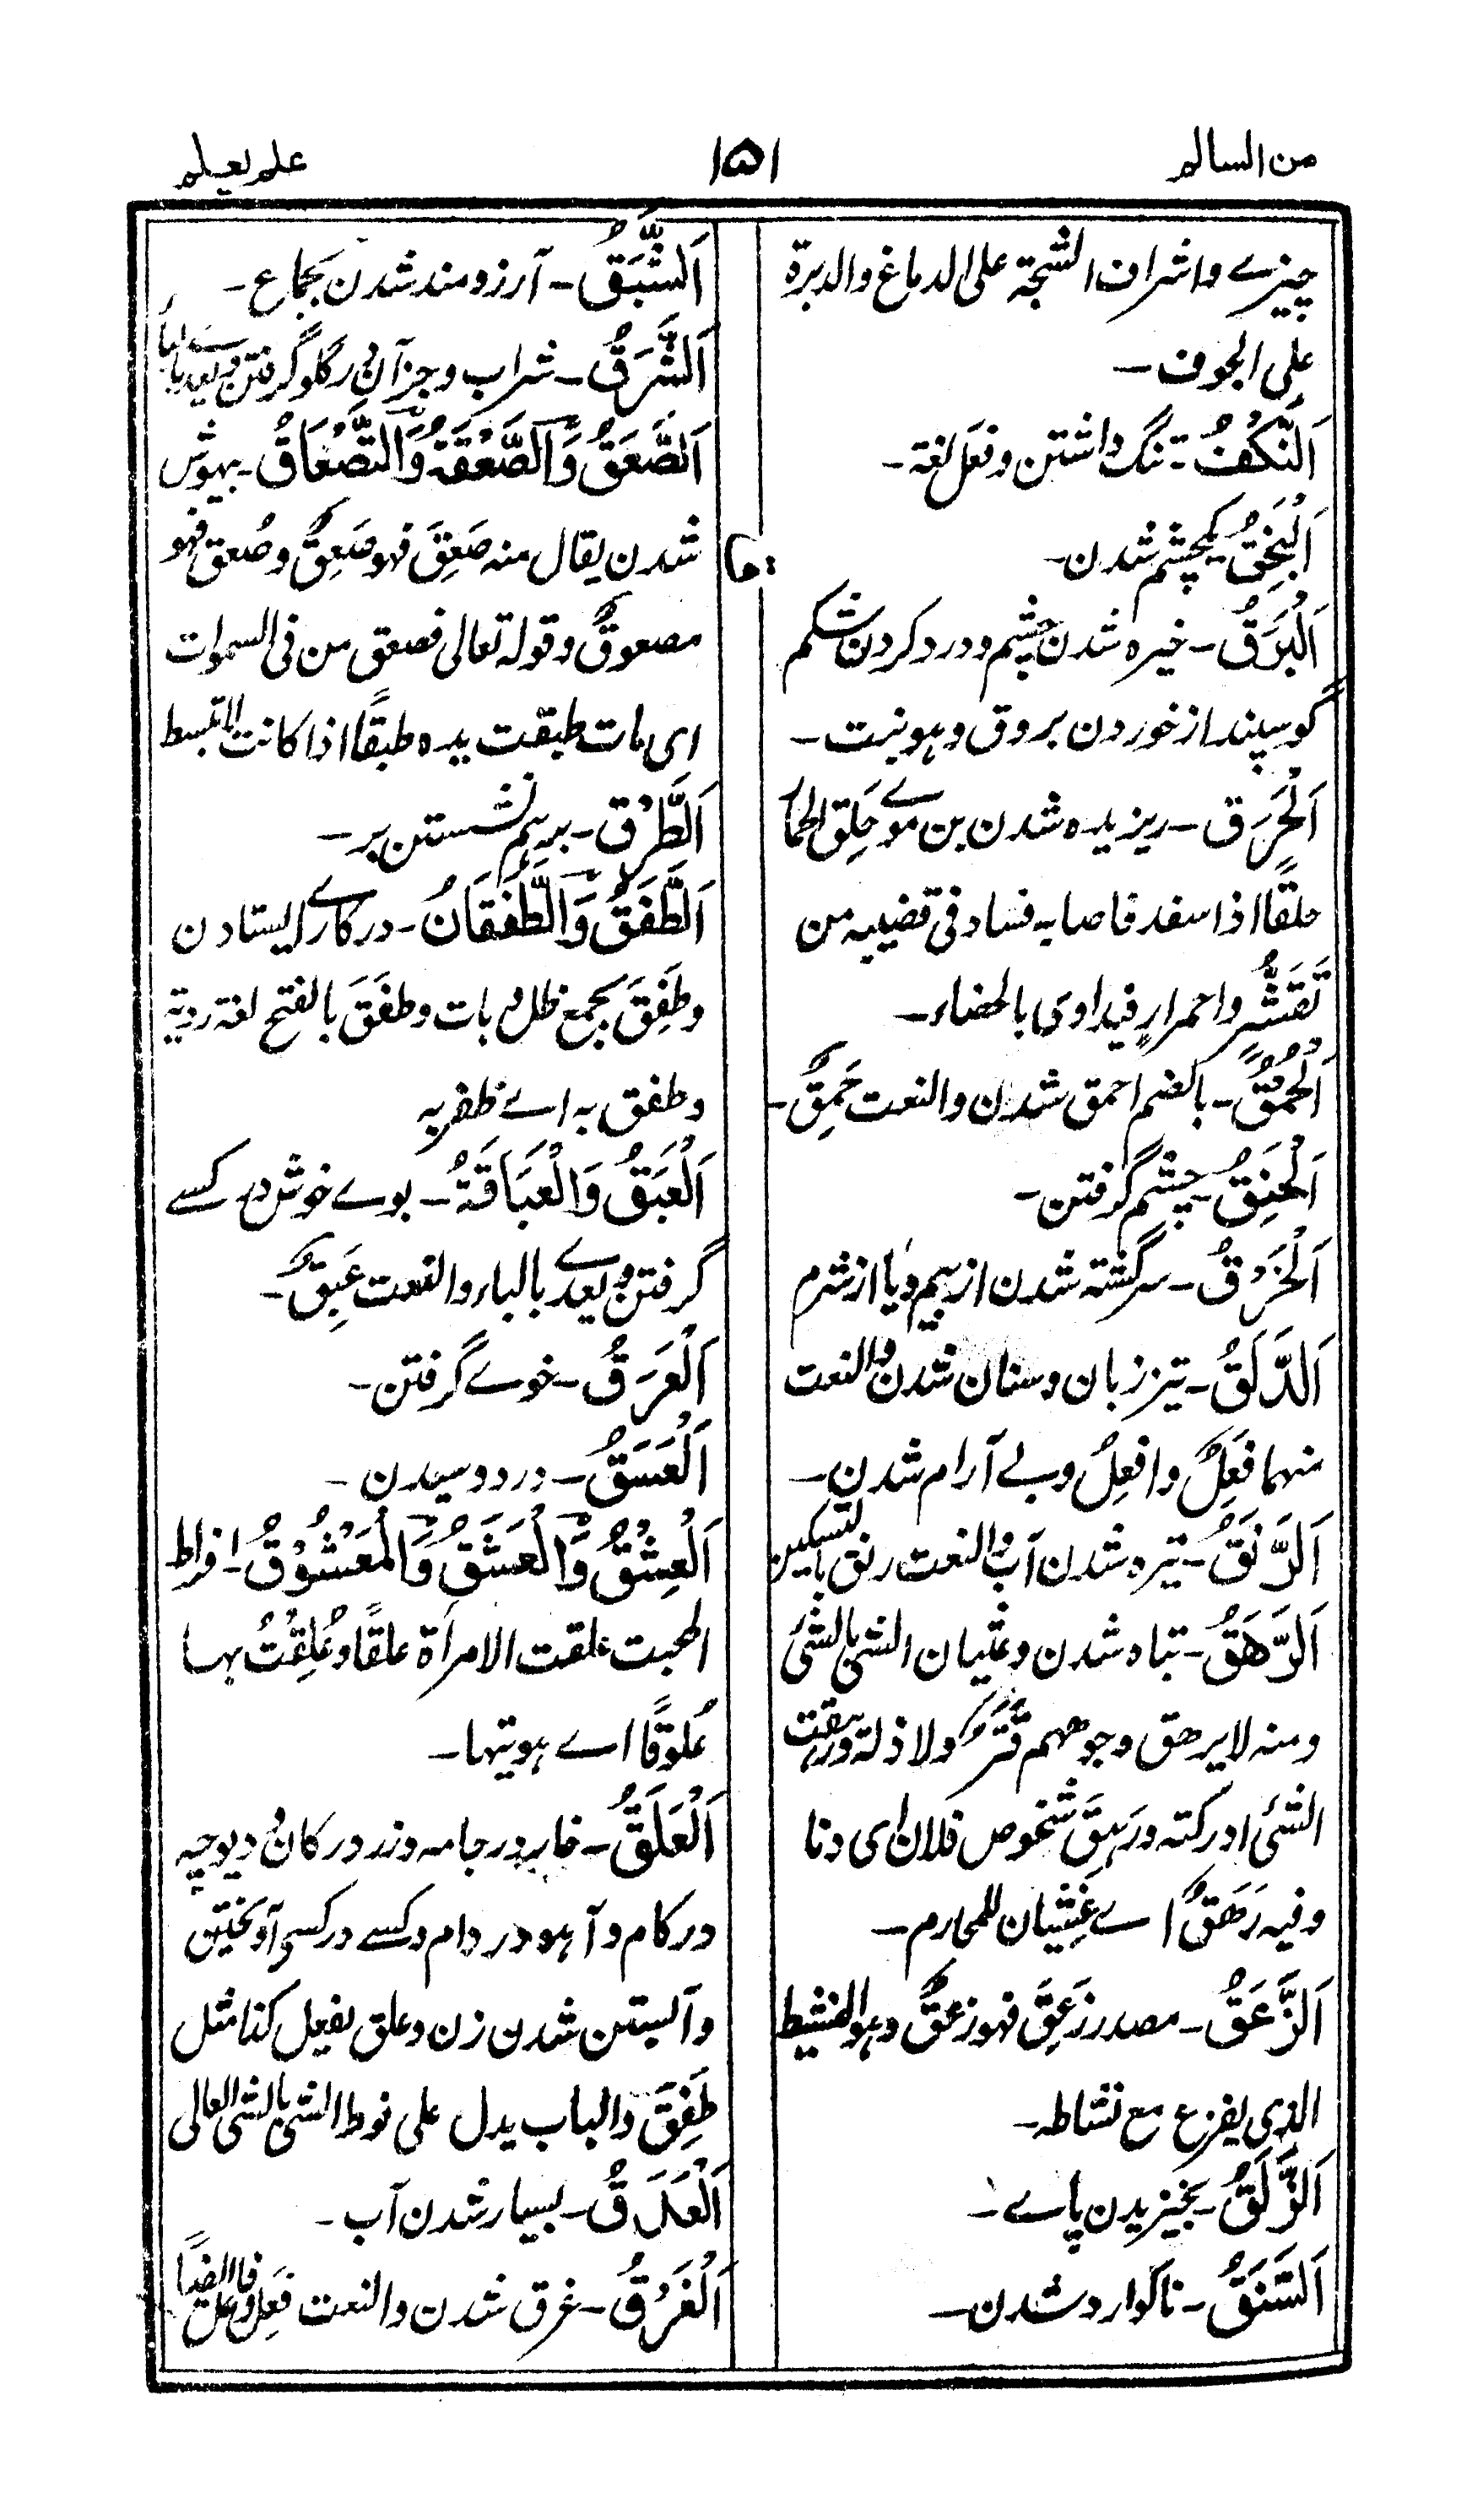 من السالم
۱۵۱
علم يعلم
چیزے واشراف الشجة علی الدماغ والدبرة
علی الجوف ۔
اَلنَّكْفُ ۔ تنگ داشتن وفعل لغة ۔
اَلْبَخَقُ یکچشم شدن ۔
اَلْبَرَقُ ۔ خیره شدن چشم ودرد کردن شکم
گوسپند از خوردن بروق وہونبت ۔
اَلْحَرَق ۔ ریزیده شدن بن موے حلق الحمار
حلقًا اذا سفد فاصابه فساد فی قضیبه من
تَقَشُّرٍ واحمرارٍ فیداوی بالخصاء ۔
اَلْحُمْقُ ۔ بالضم احمق شدن والنعت حَمِقٌ ۔
اَلْحَنِقُ ۔ خشم گرفتن ۔
اَلْخَرَقُ ۔ سرگشته شدن از بیم ویا از شرم
اَلدَّلَقُ ۔ تیز زبان وسنان شدن والنعت
منهما فَعِلٌ وافعلُ وبے آرام شدن ۔
اَلرَّنَقُ ۔ تیره شدن آب والنعت رنق بالتسکین
اَلرَّهَقُ ۔ تباه شدن وغشیان الشئ بالشئ
ومنه لا یرهق وجوههم قَتَرٌ ولا ذلة ورہقت
الشئ ادرکته ورَہِقَ شخوص فلان ای دنا
وفیه رَهَقٌ اے غِشیان للمحارم ۔
اَلزَّعَقُ ۔ مصدر زَعِقَ فهو زعقٌ وہو النشیط
الذی یفزع مع نشاطه ۔
اَلزَّلَقُ ۔ بخیزیدن پاے ۔
اَلسَّنَقُ ۔ ناگوارد شدن ۔
اَلشَّبَقُ ۔ آرزومند شدن بجماع ۔
اَلشَّرَقُ ۔ شراب وجز آن در گلو گرفتن ویعدے بالباء
اَلصَّعَقُ وَالصَّعْقَةُ وَالتَّصْعَاقُ ۔ بیہوش
شدن یقال منه صَعِقَ فهو صَعِقٌ وصُعق فهو
مصعوقٌ وقوله تعالی فصعق من فی السموات
ای مات طبقت یده طبقًا اذا کانت لا تنبسط
اَلطَّرَق ۔ برہم نشستن پر ۔
اَلطَّفَقُ وَالطَّفَقَانُ ۔ در کارے ایستادن
وطَفِقَ یجمع ظل وبات وطفَقَ بالفتح لغة ردیة
وطفق به اے ظفر به
اَلْعَبَقُ وَالْعَبَاقَةُ ۔ بوے خوش در کسے
گرفتن ویعدے بالباء والنعت عَبِقٌ ۔
اَلْعَرَقُ ۔ خوے گرفتن ۔
اَلْعَسَقُ ۔ در دوسیدن ۔
اَلْعِشْقُ وَالْعَشَقُ وَالْمَعْشُوْقُ ۔ افراط
المحبت علقت الامرأة علقًا وعُلِقْتُ بہا
عُلوقًا اے ہویتہا ۔
اَلْعَلَقُ ۔ خار در جامه وزد در کان ودیوچه
در کام وآہو در دام وکسے در کسی آویختن
وآبستن شدن زن وعلق یفعل کذا مثل
طَفِقَ والباب یدل علی نوط الشئ بالشئ العالی
اَلْغَدَقُ ۔ بسیار شدن آب ۔
اَلْغَرَقُ ۔ غرق شدن والنعت فَعِلٌ وفاعلٌ ایضًا